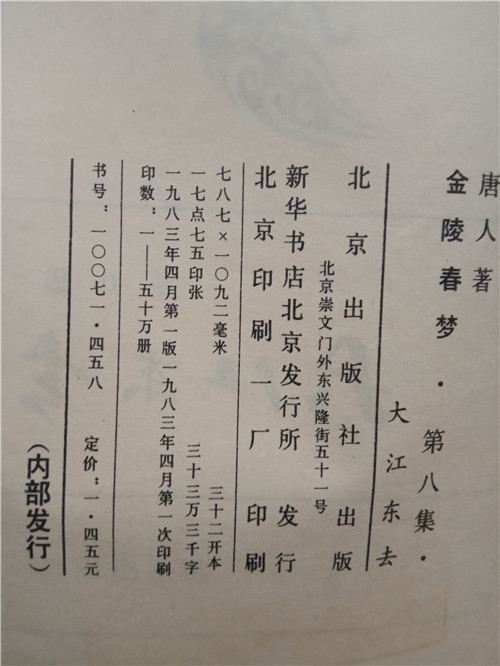 唐人著
金陵春梦·第八集·
大江东去
北京出版社出版
北京崇文门外东兴隆街五十一号
新华书店北京发行所 发行
北京印刷一厂 印刷
七八七×一〇九二毫米 三十二开本
一七点七五印张 三十三万三千字
一九八三年四月第一版一九八三年四月第一次印刷
印数：一——五十万册
书号：一〇〇七一·四五八 定价：一·四五元
（内部发行）